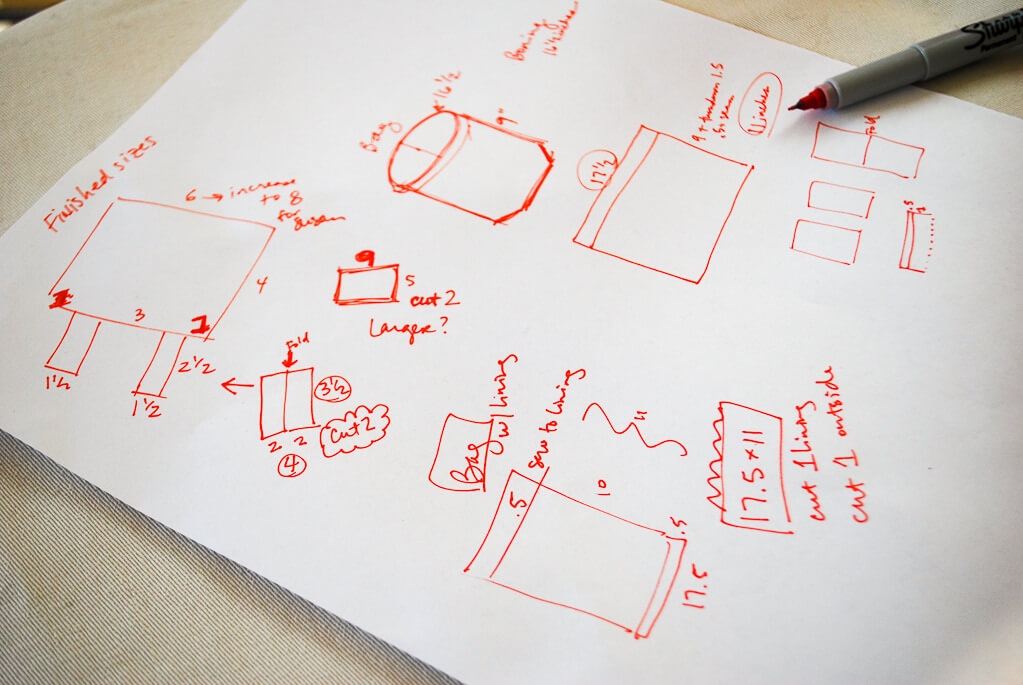 Finished sizes
6 → increase
to 8
for
3
4
1
1½
1½
2½
Fold
3½
2 2
4
cut 2
Bag
16½
9"
Boning
16½ inches
9
5
cut 2
Larger?
17½
9 + 1.5
.5
11 inches
Fold
.5
Sharpie
Bag
w/ lining
sew to lining
.5
10
11
.5
17.5
17.5 x 11
cut 1 lining
cut 1 outside